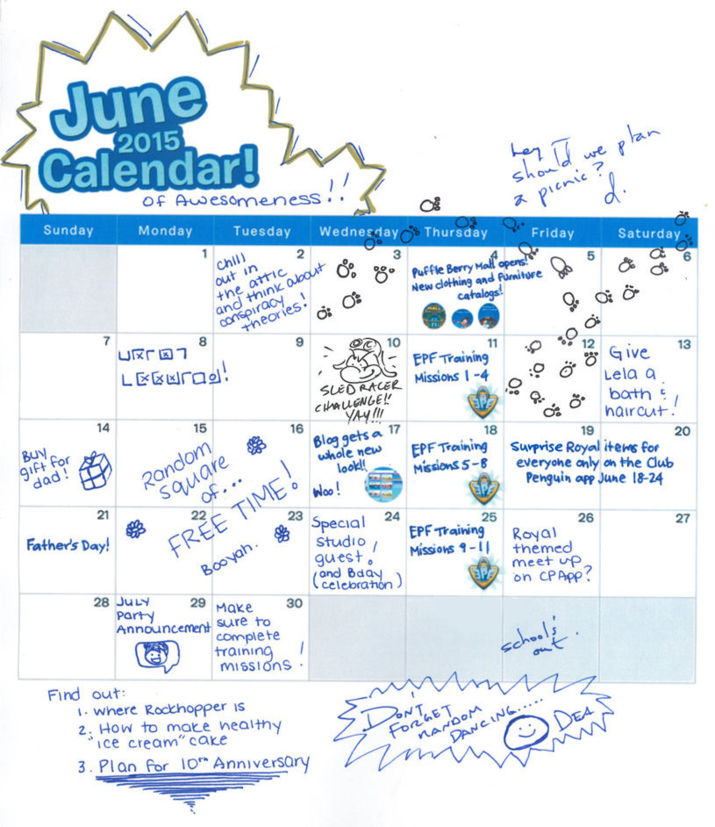 June
2015
Calendar!
of Awesomeness!!
Hey
should we plan
a picnic?
d.
Sunday Monday Tuesday Wednesday Thursday Friday Saturday
1
2
Chill
out in
the attic
and think about
conspiracy
theories!
3
4
Puffle Berry Mall opens!
New clothing and furniture
catalogs!
5
6
7
8
9
10
SLED RACER
CHALLENGE!!
YAY!!!
11
EPF Training
Missions 1-4
EPF
12
13
Give
Lela a
bath &
haircut!
14
Buy
gift for
dad!
15
Random
square
of...
16
FREE TIME!
Booyah.
17
Blog gets a
whole new
look!!
Woo!
18
EPF Training
Missions 5-8
EPF
19
20
Surprise Royal items for
everyone only on the Club
Penguin app June 18-24
21
Father's Day!
22
23
24
Special
Studio
guest!
(and Bday
celebration)
25
EPF Training
Missions 9-11
EPF
26
Royal
themed
meet up
on CPApp?
27
28
29
July
Party
Announcement
30
Make
sure to
complete
training
missions!
school's
out.
Find out:
1. Where Rockhopper is
2. How to make healthy
"ice cream" cake
3. Plan for 10th Anniversary
DON'T
FORGET
RANDOM
DANCING.....
DEA